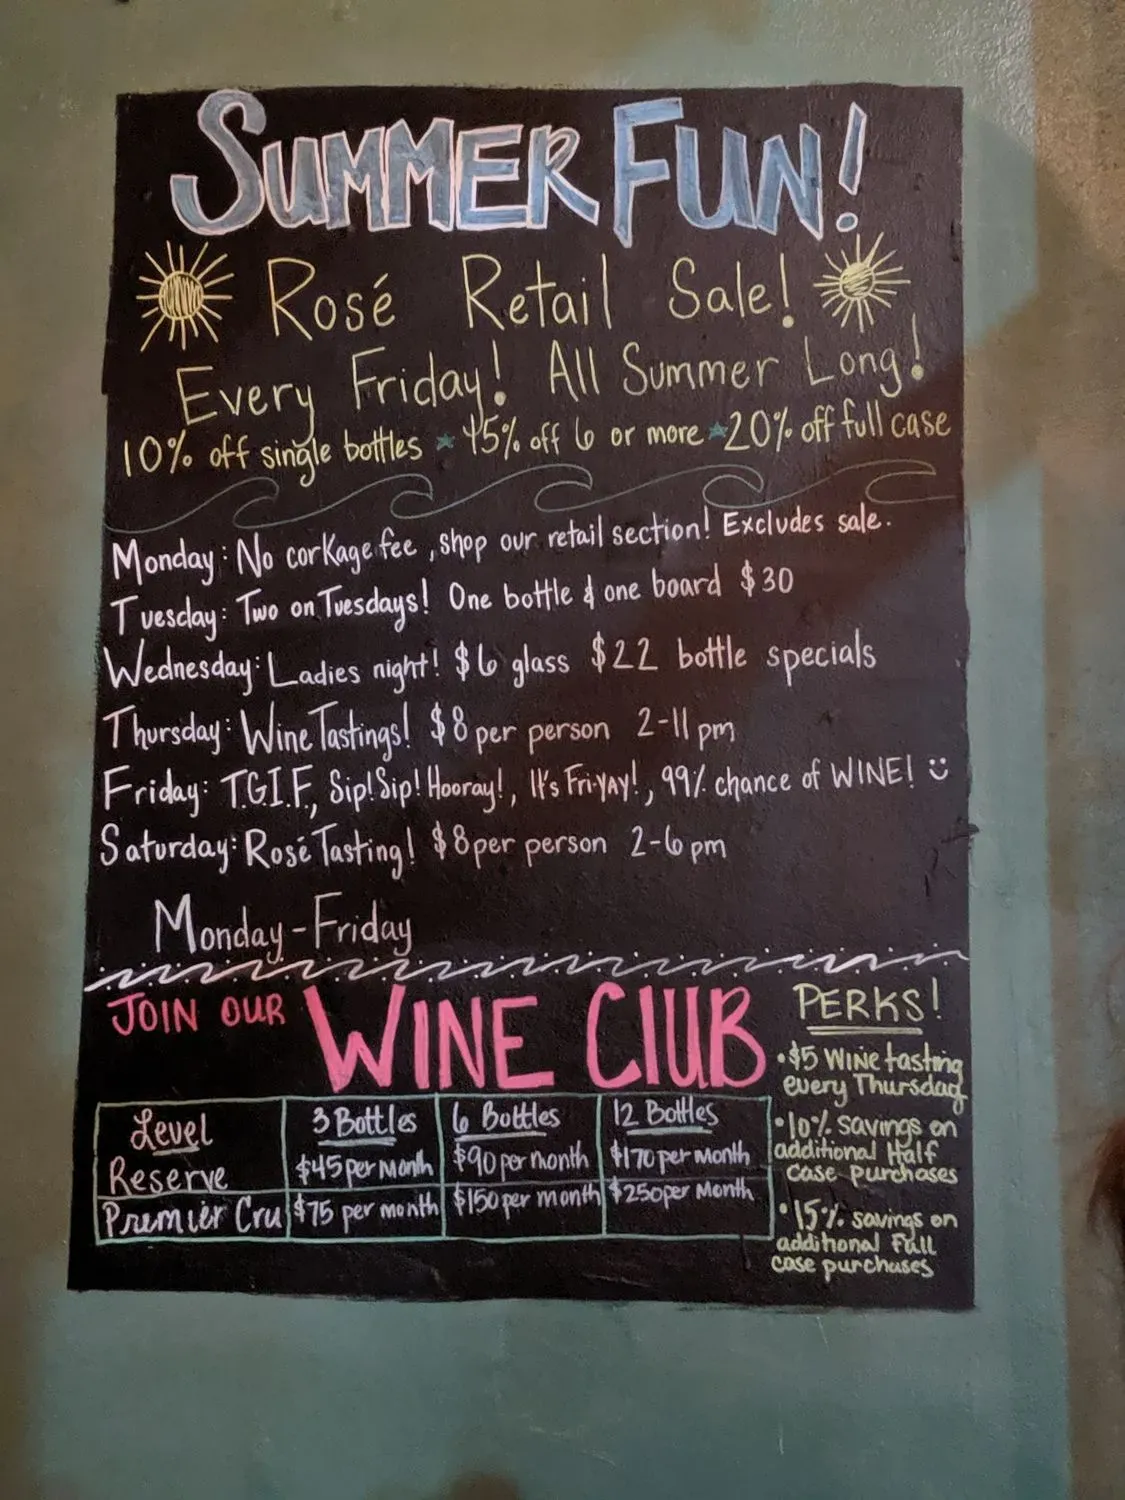 SUMMER FUN!
Rosé Retail Sale!
Every Friday! All Summer Long!
10% off single bottles ★ 15% off 6 or more ★ 20% off full case
Monday: No corkage fee, shop our retail section! Excludes sale.
Tuesday: Two on Tuesdays! One bottle & one board $30
Wednesday: Ladies night! $6 glass $22 bottle specials
Thursday: Wine Tastings! $8 per person 2-11 pm
Friday: T.G.I.F, Sip! Sip! Hooray!, It's Fri-YAY!, 99% chance of WINE! :)
Saturday: Rosé Tasting! $8 per person 2-6 pm
Monday - Friday
JOIN OUR WINE ClUB
Level 3 Bottles 6 Bottles 12 Bottles
Reserve $45 per month $90 per month $170 per month
Premier Cru $75 per month $150 per month $250 per month
PERKS!
• $5 Wine tasting
every Thursday
• 10% savings on
additional Half
case purchases
• 15% savings on
additional Full
case purchases